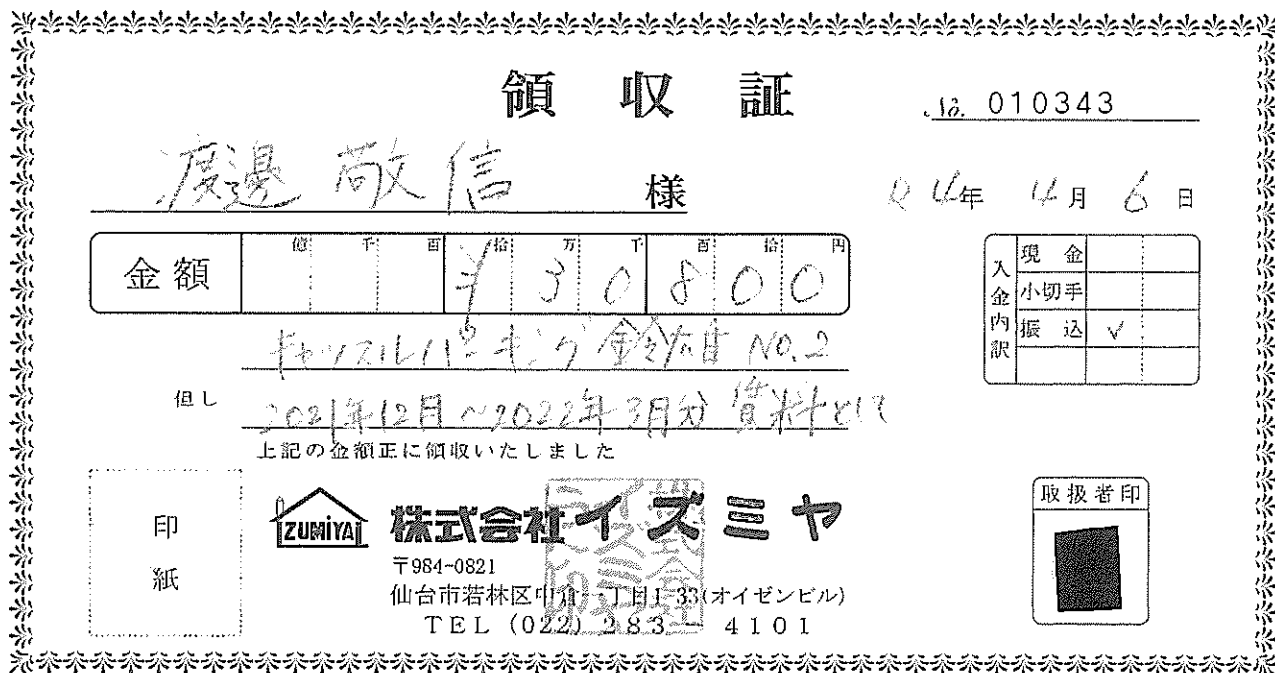 領収証
No. 010343
渡邊 敬信 様
R4年 4月 6日
金額
億 千 百 拾 万 千 百 拾 円
¥30800
入金内訳
現金
小切手
振込 ✓
キャッスルパーキング No.2
但し 2021年12月~2022年3月分 賃料として
上記の金額正に領収いたしました
印紙
IZUMIYA
株式会社イズミヤ
〒984-0821
仙台市若林区中倉一丁目1-33(オイゼンビル)
TEL (022) 283-4101
取扱者印